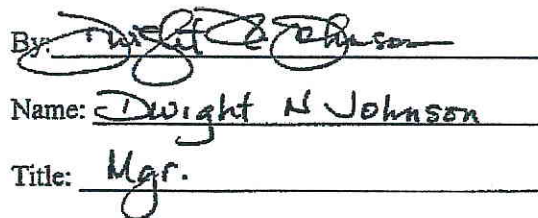 By: Dwight Johnson
Name: Dwight N Johnson
Title: Mgr.